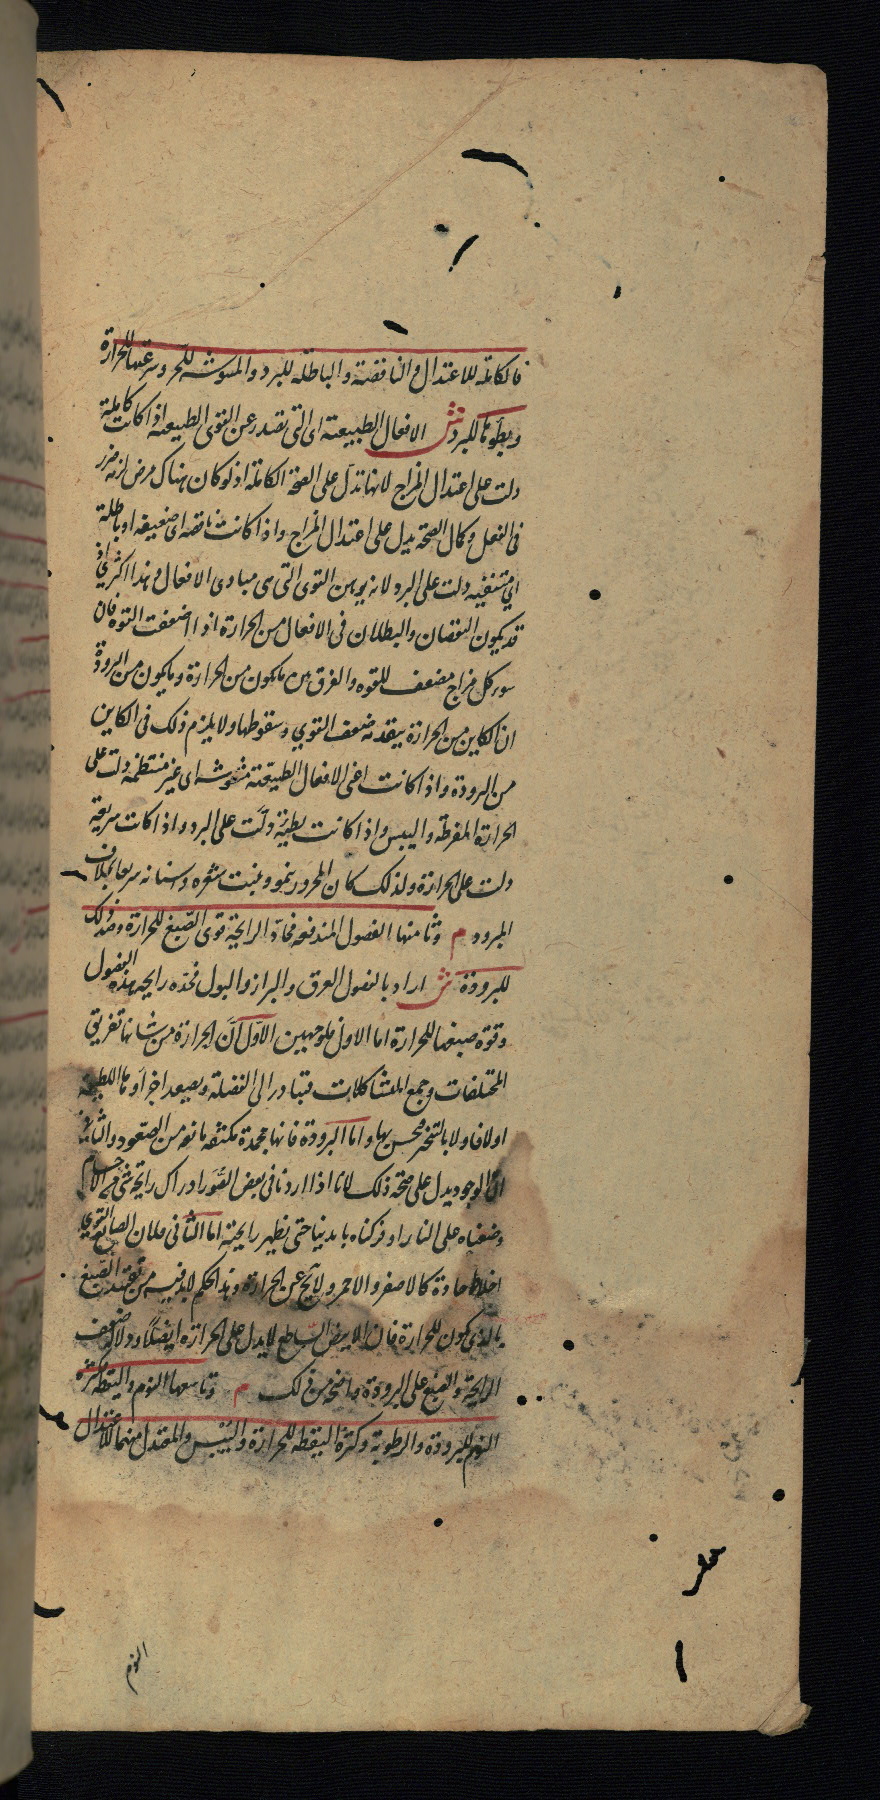 فالكاملة للاعتدال والناقصة والباطلة للبرد والمشوشة للحر وسرعتها للحرارة
وبطؤها للبرد ش الافعال الطبيعية اى التى تصدر عن القوى الطبيعية اذا كانت كاملة
دلت على اعتدال المزاج لانها تدل على الصحة الكاملة اذ لو كان هناك مرض لزمه ضرر
فى الفعل وكمال الصحة يدل على اعتدال المزاج واذا كانت ناقصة اى ضعيفة او باطلة
اى منتفية دلت على البرد لانه يوهن القوى التى هى مبادى الافعال وهذا اكثرى اذ
قد يكون النقصان والبطلان فى الافعال من الحرارة اذا اضعفت القوة فان
سوء كل مزاج مضعف للقوة والفرق بين ما يكون من الحرارة وما يكون من البرودة
ان الكاين من الحرارة يتقدمه ضعف القوى وسقوطها ولا يلزم ذلك فى الكاين
من البرودة واذا كانت اعنى الافعال الطبيعية مشوشة اى غير منتظمة دلت على
الحرارة المفرطة واليبس واذا كانت بطيئة دلت على البرد واذا كانت سريعة
دلت على الحرارة ولذلك كان المحرور ينمو وينبت شعره واسنانه سريعا بخلاف
المبرود م وثامنها الفضول المندفعة فحادّ الرايحة قوى الصبغ للحرارة وضد ذلك
للبرودة ش اراد بالفضول العرق والبراز والبول فحدّه رايحة هذه الفضول
وقوة صبغها للحرارة اما الاول فلوجهين الاول انّ الحرارة من شانها تفريق
المختلفات وجمع المتشاكلات فتبادر الى الفضلة ويصعد اجزاؤها اللطيفة
اولا فاولا بالتبخر فيحس بها واما البرودة فانها مجمدة مكثفه مانعه من الصعود والثانى
انّ الوجود يدل على صحة ذلك لانا اذا اردنا فى بعض الصور ادراك رايحة شىء من الاجسام
وضعناه على النار او فركناه بايدينا حتى تظهر رايحته اما الثانى فلان الصابغ القوى
اخلاط حادة كالاصفر والاحمر ولا يخ عن الحرارة وهذا الحكم لا بد فيه من تقييد الصبغ
بالذى يكون للحرارة فان الابيض الساطع لا يدل على الحرارة ايضا ودلالة ضعف
الرايحة والصبغ على البرودة واضحة من ذلك م وتاسعها النوم واليقظة فكثرة
النوم للبرودة والرطوبة وكثرة اليقظة للحرارة واليبس والمعتدل منهما للاعتدال
النوم